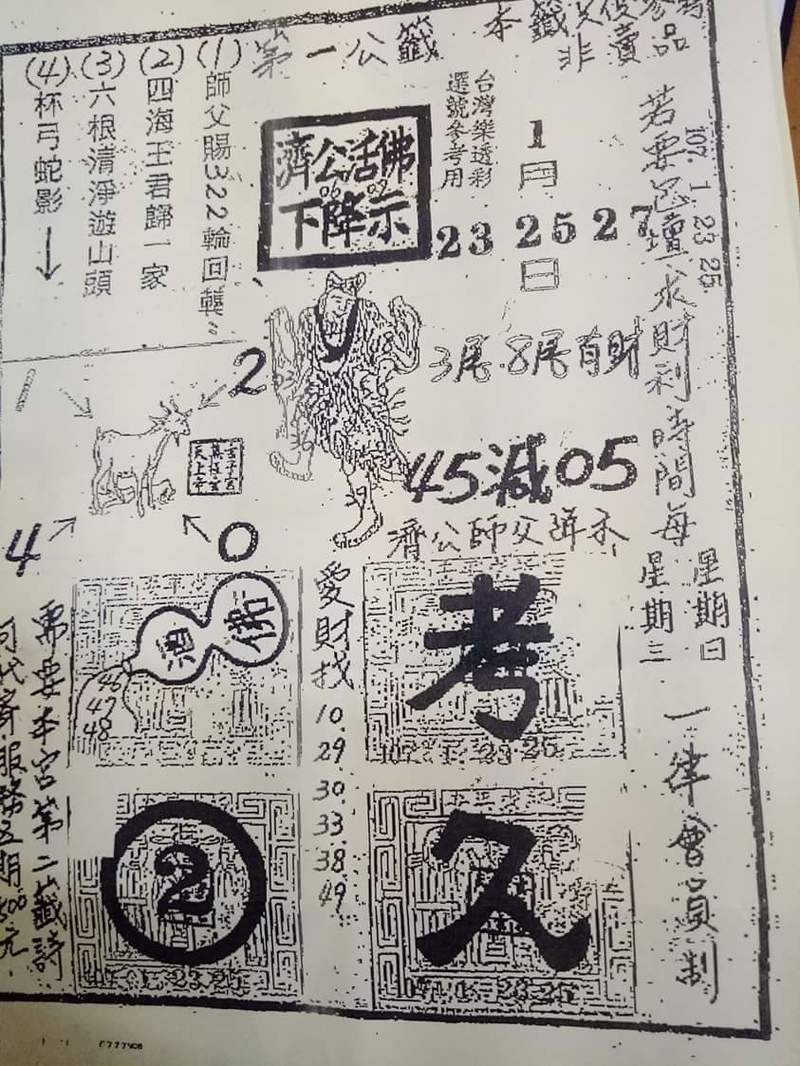 本籤
非賣品
第一公籤
107. 1. 23 25
若要
求財利時間每
星期日
星期三
一律會員制
台灣樂透彩
選號參考用
1
月
23 25 27
日
濟公活佛
06 07
下降示
(1)師父賜322輪回轉〃
(2)四海王君歸一家
(3)六根清淨遊山頭
(4)杯弓蛇影↓
3尾.8尾有財
45減05
濟公師父降示
1
2
4
0
考
久
愛財找
10
29
30
33
38
49
佛
酒
46
47
48
2
需要本宮第二籤詩
可代寄服務五期500元